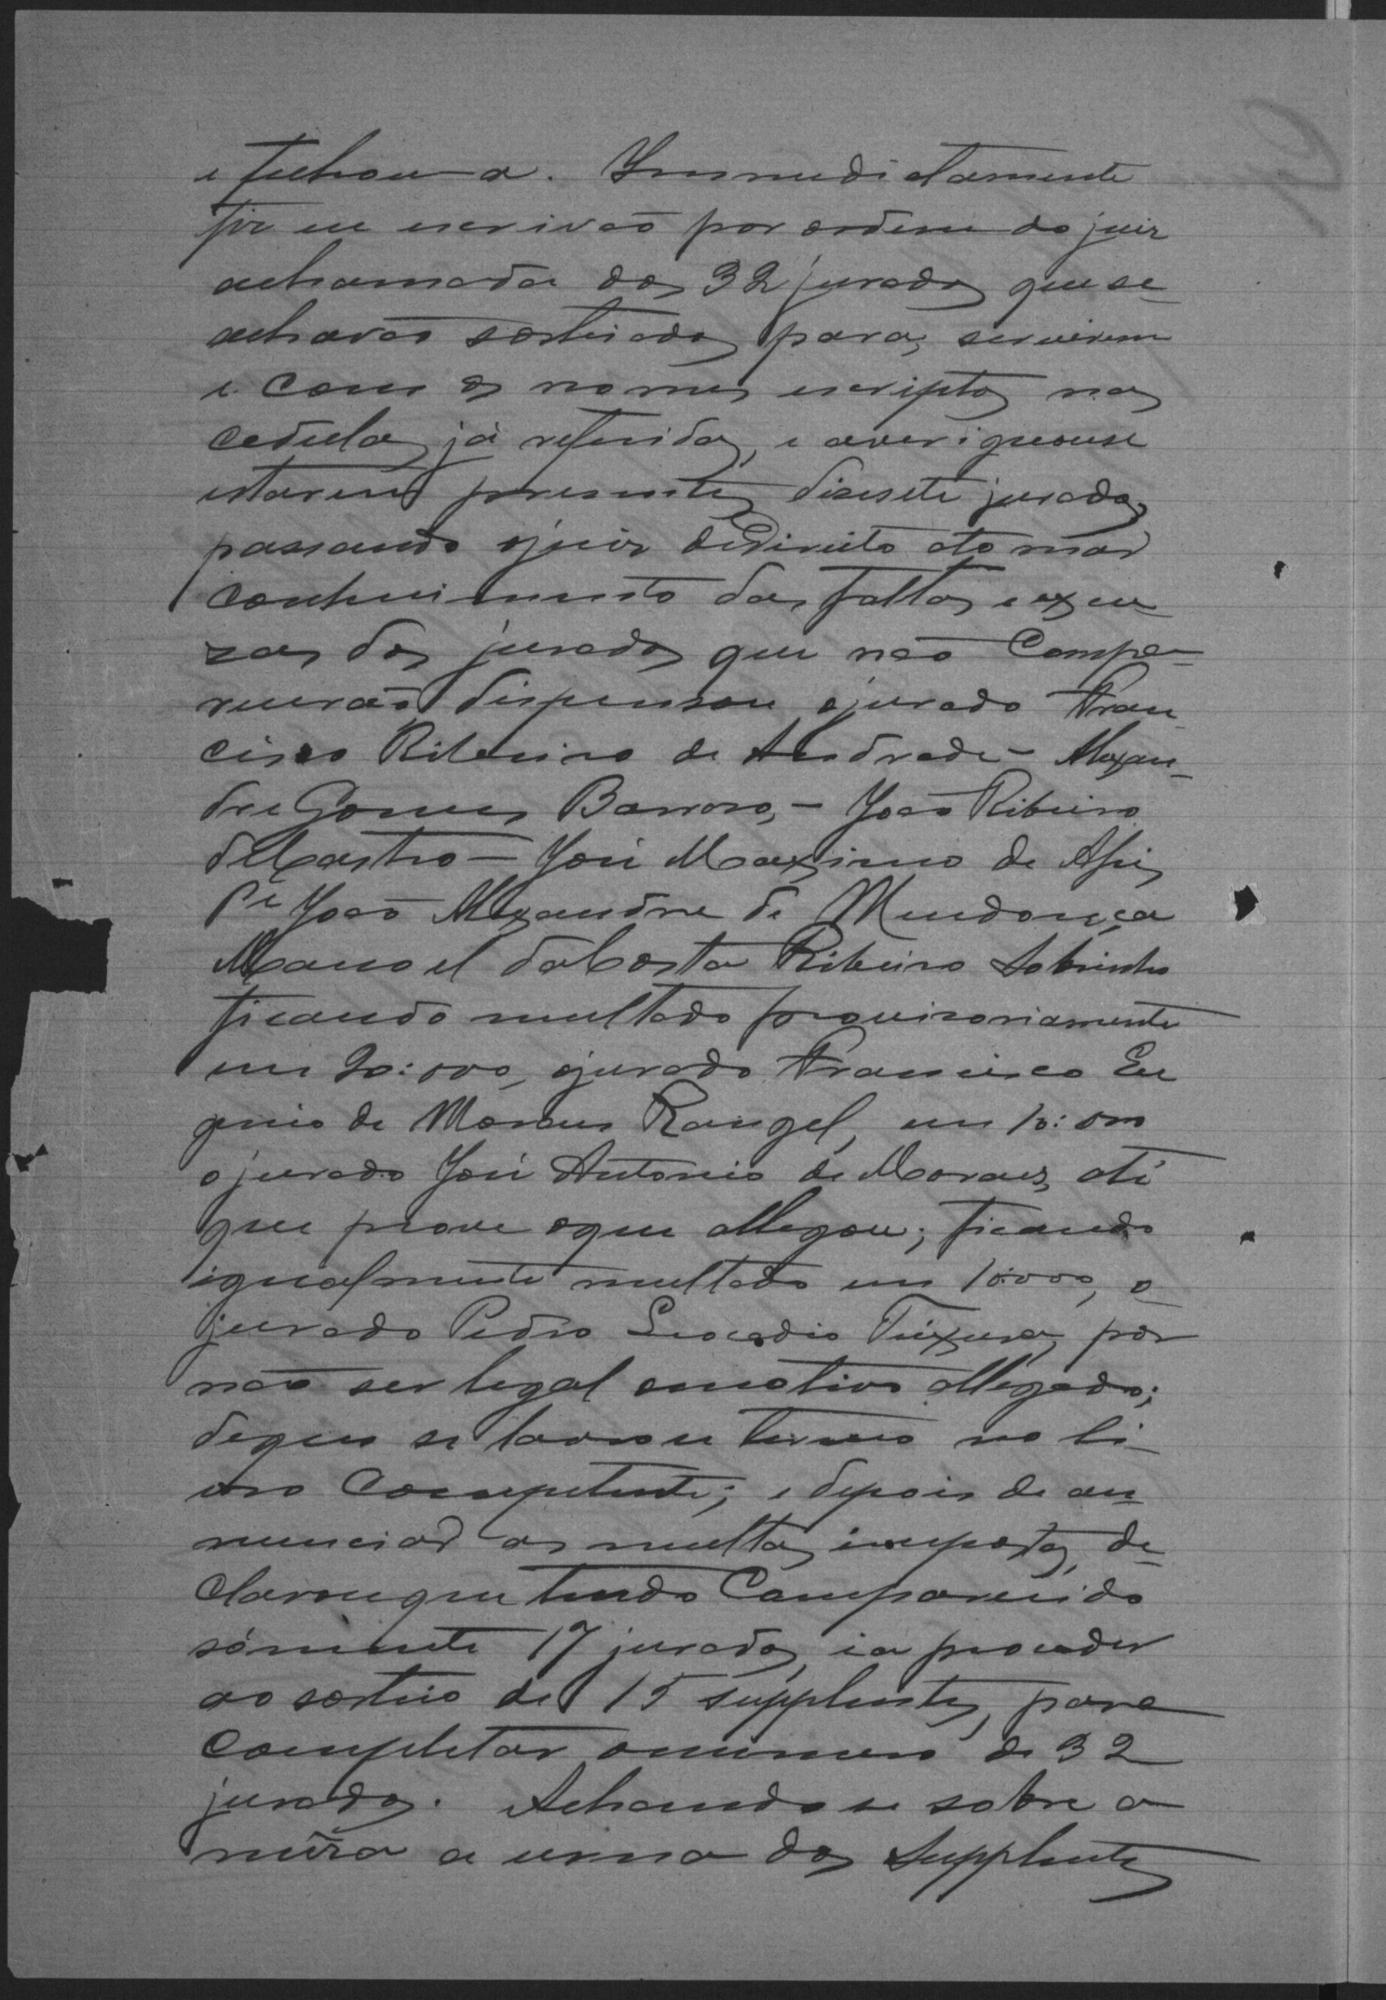 e fechou-a. Immediatamente
fiz eu escrivão por ordem do juiz
achamada dos 32 jurados que se
achavão sorteados para servirem
e com os nomes escriptos nas
cedulas já referidas, e averiguouse
estarem presentes dizesete jurados,
passando ojuiz dedireito atomar
conhecimento das faltas e escu
zas dos jurados que não Compa-
recerão dispensou ojurado Fran
cisco Ribeiro de Andrade - Alexan-
dre Gomes Barroso, - João Ribeiro
deCastro - José Maximo de Assis
Pe João Alexandre de Mendonça
Manoel daCosta Ribeiro Sobrinho
ficando multado provisoriamente
em 20:000, ojurado Francisco Eu
genio de Moraes Rangel, em 10:000
ojurado José Antonio de Moraes, até
que prove oque allegou; ficando
igualmente multado em 10:000, o
jurado Pedro Leocadio Teixeira, por
não ser legal omotivo allegado;
dequi se lavrou termo no li-
vro Competente; e depois de an
nunciar as multas impostas, de-
clarouque tendo Comparecido
sómente 17 jurados, ia proceder
ao sorteio de 15 supplentes, para
completar onumero de 32
jurados. Achandose sobre a
meza a urna dos Supplentes